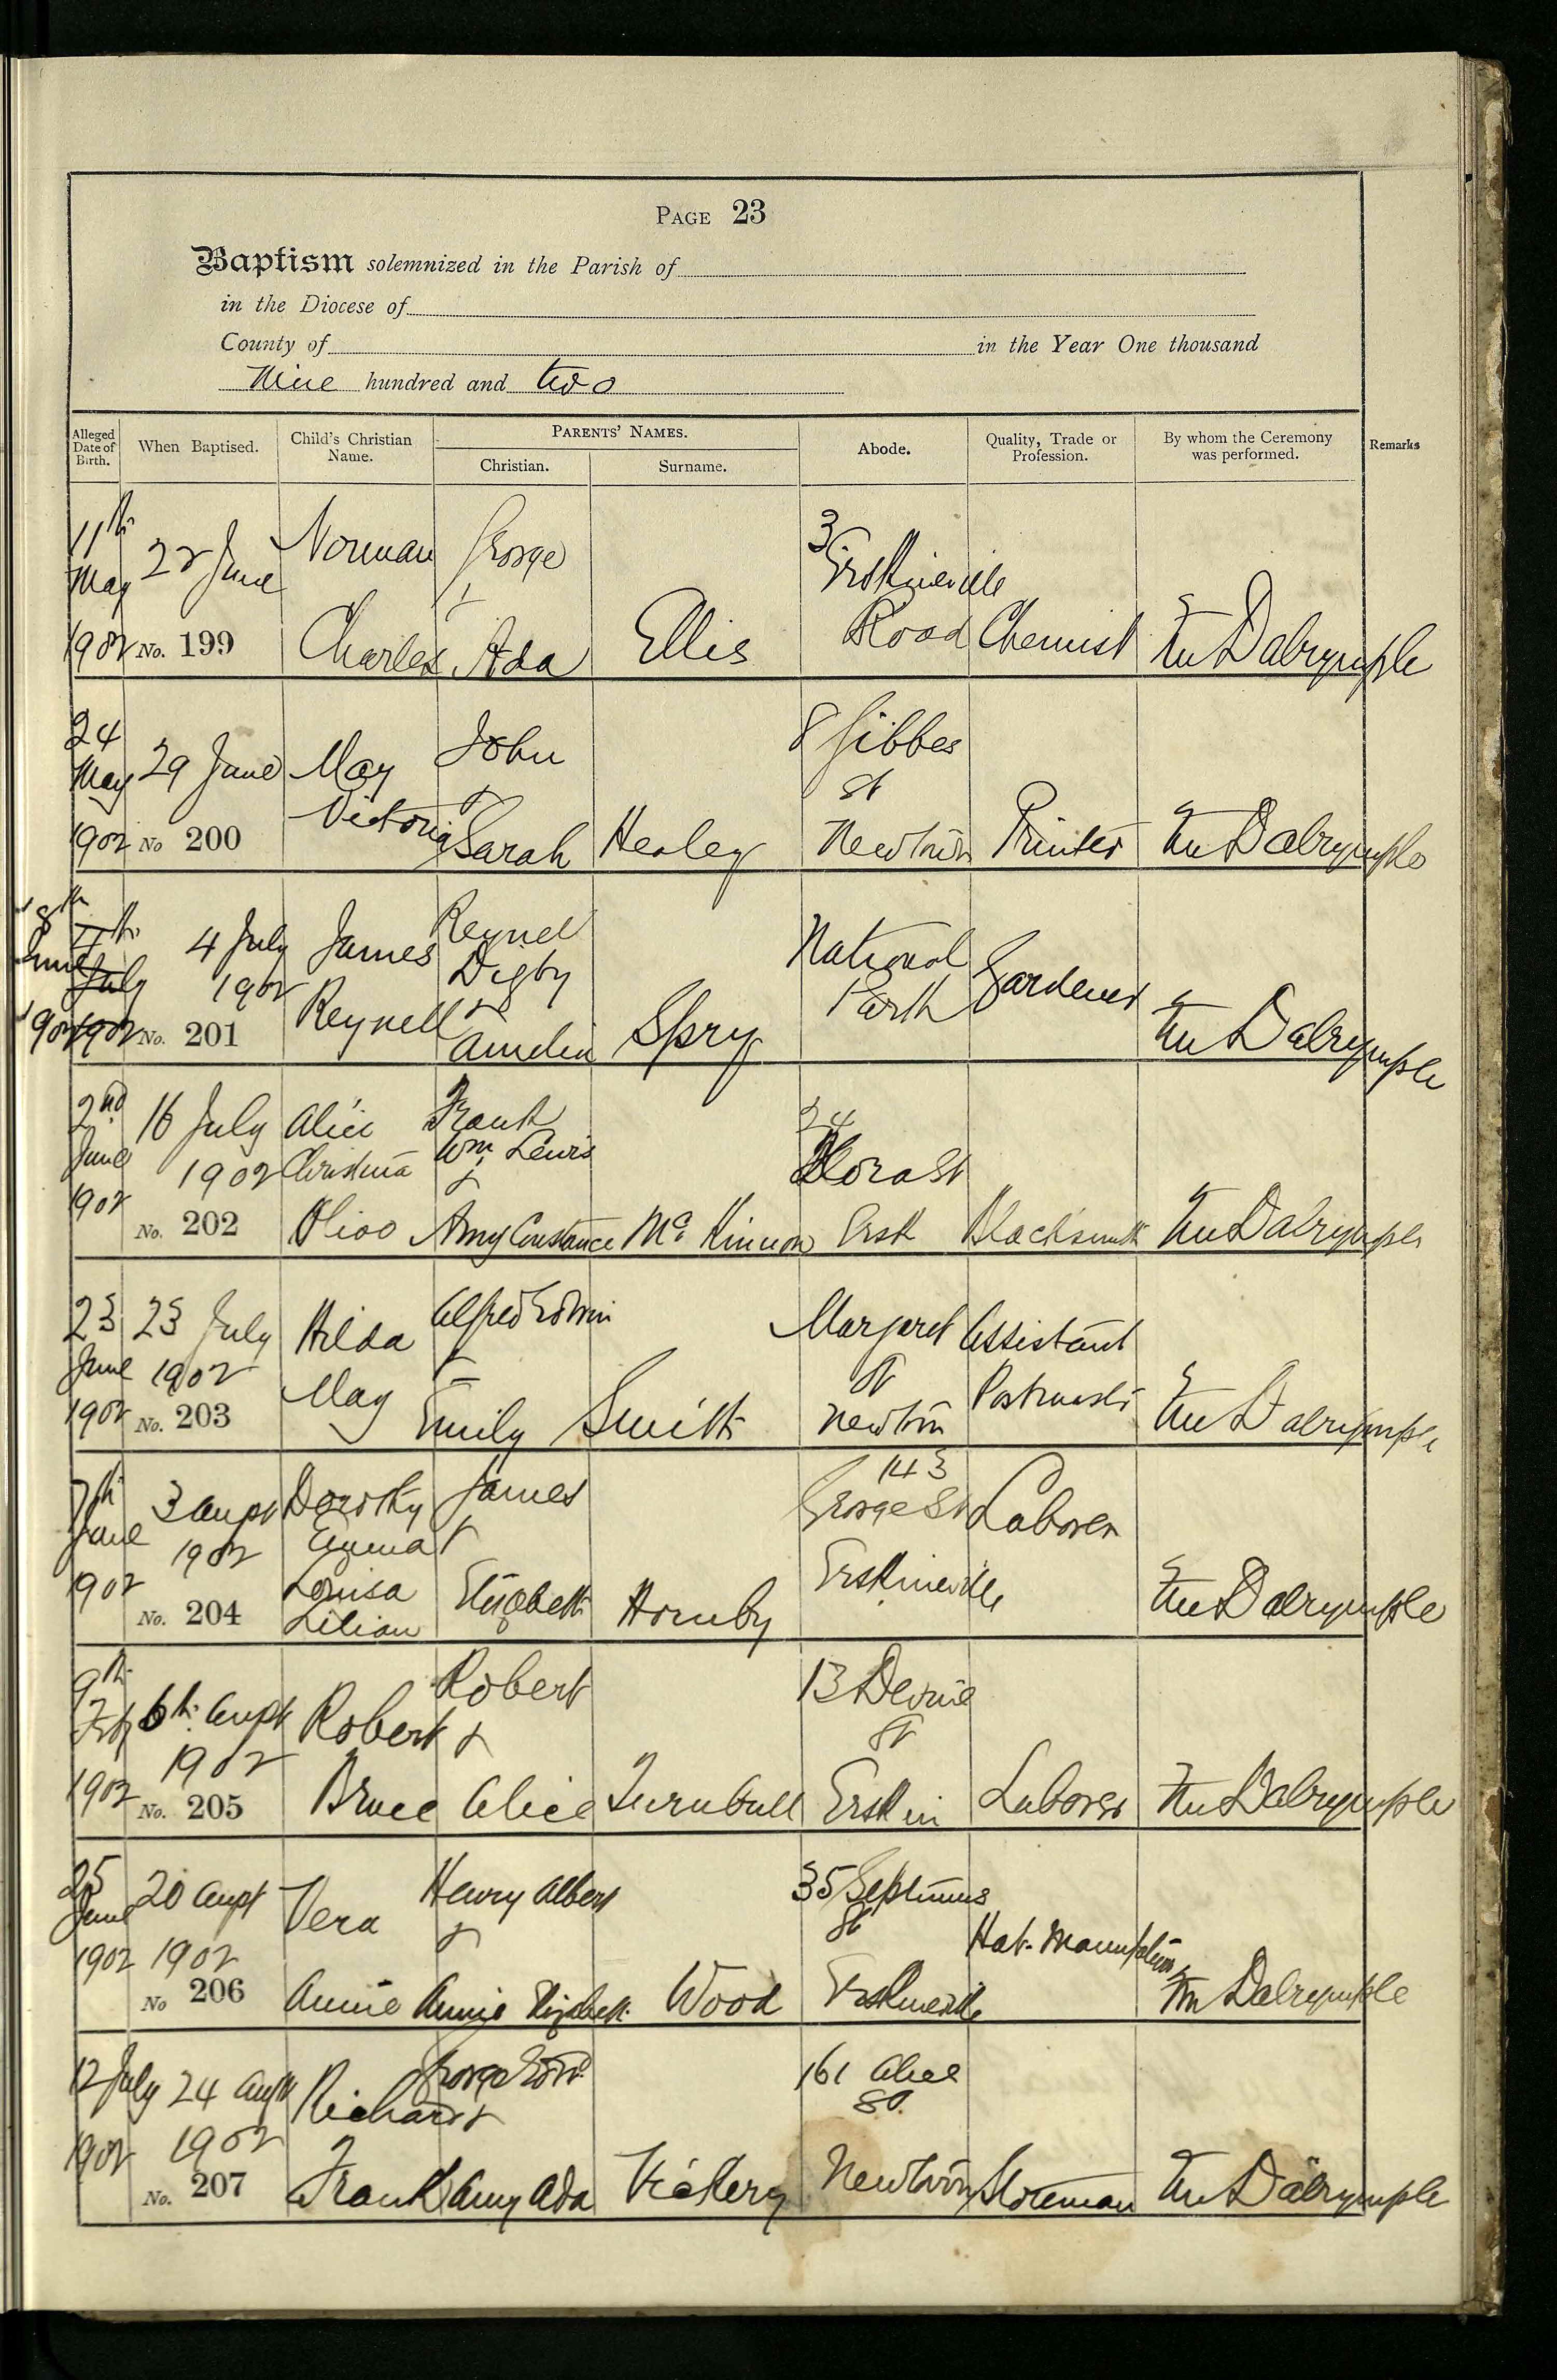 PAGE 23
Baptism solemnized in the Parish of
in the Diocese of
County of in the Year One thousand
Nine hundred and two
Alleged Date of Birth. When Baptised. Child's Christian Name. PARENTS' NAMES. Christian. Surname. Abode. Quality, Trade or Profession. By whom the Ceremony was performed. Remarks
11th May 1902
22 June
No. 199
Norman
Charles
George
&
Ada
Ellis
3
Erskineville
Road
Chemist
Dalrymple
24
May
1902
29 June
No 200
May
Victoria
John
&
Sarah
Healey
8 Gibbes
St
Newtown
Printer
Dalrymple
18th
June
1902
July
1902
4 July
1902
No. 201
James
Reynell
Reynell
Digby
&
Amelia
Spry
National
Park
Gardener
Dalrymple
2nd
June
1902
16 July
1902
No. 202
Alice
Christina
Olive
Frank
Wm. Lewis
&
Amy Constance
McKinnon
24
Flora St
Ersk
Blacksmith
Dalrymple
23
June
1902
23 July
1902
No. 203
Hilda
May
Alfred Edwin
&
Emily
Smith
Margaret
St
Newton
Assistant
Dalrymple
7th
June
1902
3 August
1902
No. 204
Dorothy
Emma
Louisa
Lilian
James
&
Elizabeth
Hornby
143
George St
Erskineville
Laborer
Dalrymple
9th
1902
6th August
1902
No. 205
Robert
Bruce
Robert
&
Alice
Turnbull
13 Devine
St
Erskin
Laborer
Dalrymple
25
June
1902
20 August
1902
No 206
Vera
Annie
Henry Albert
&
Annie Elizabeth
Wood
35 Septimus
St
Erskineville
Hat-
Dalrymple
12 July
1902
24 August
1902
No. 207
Richard
Frank
George Edwd
&
Amy Ada
Vickery
161 Alice
St.
Newtown
Storeman
Dalrymple